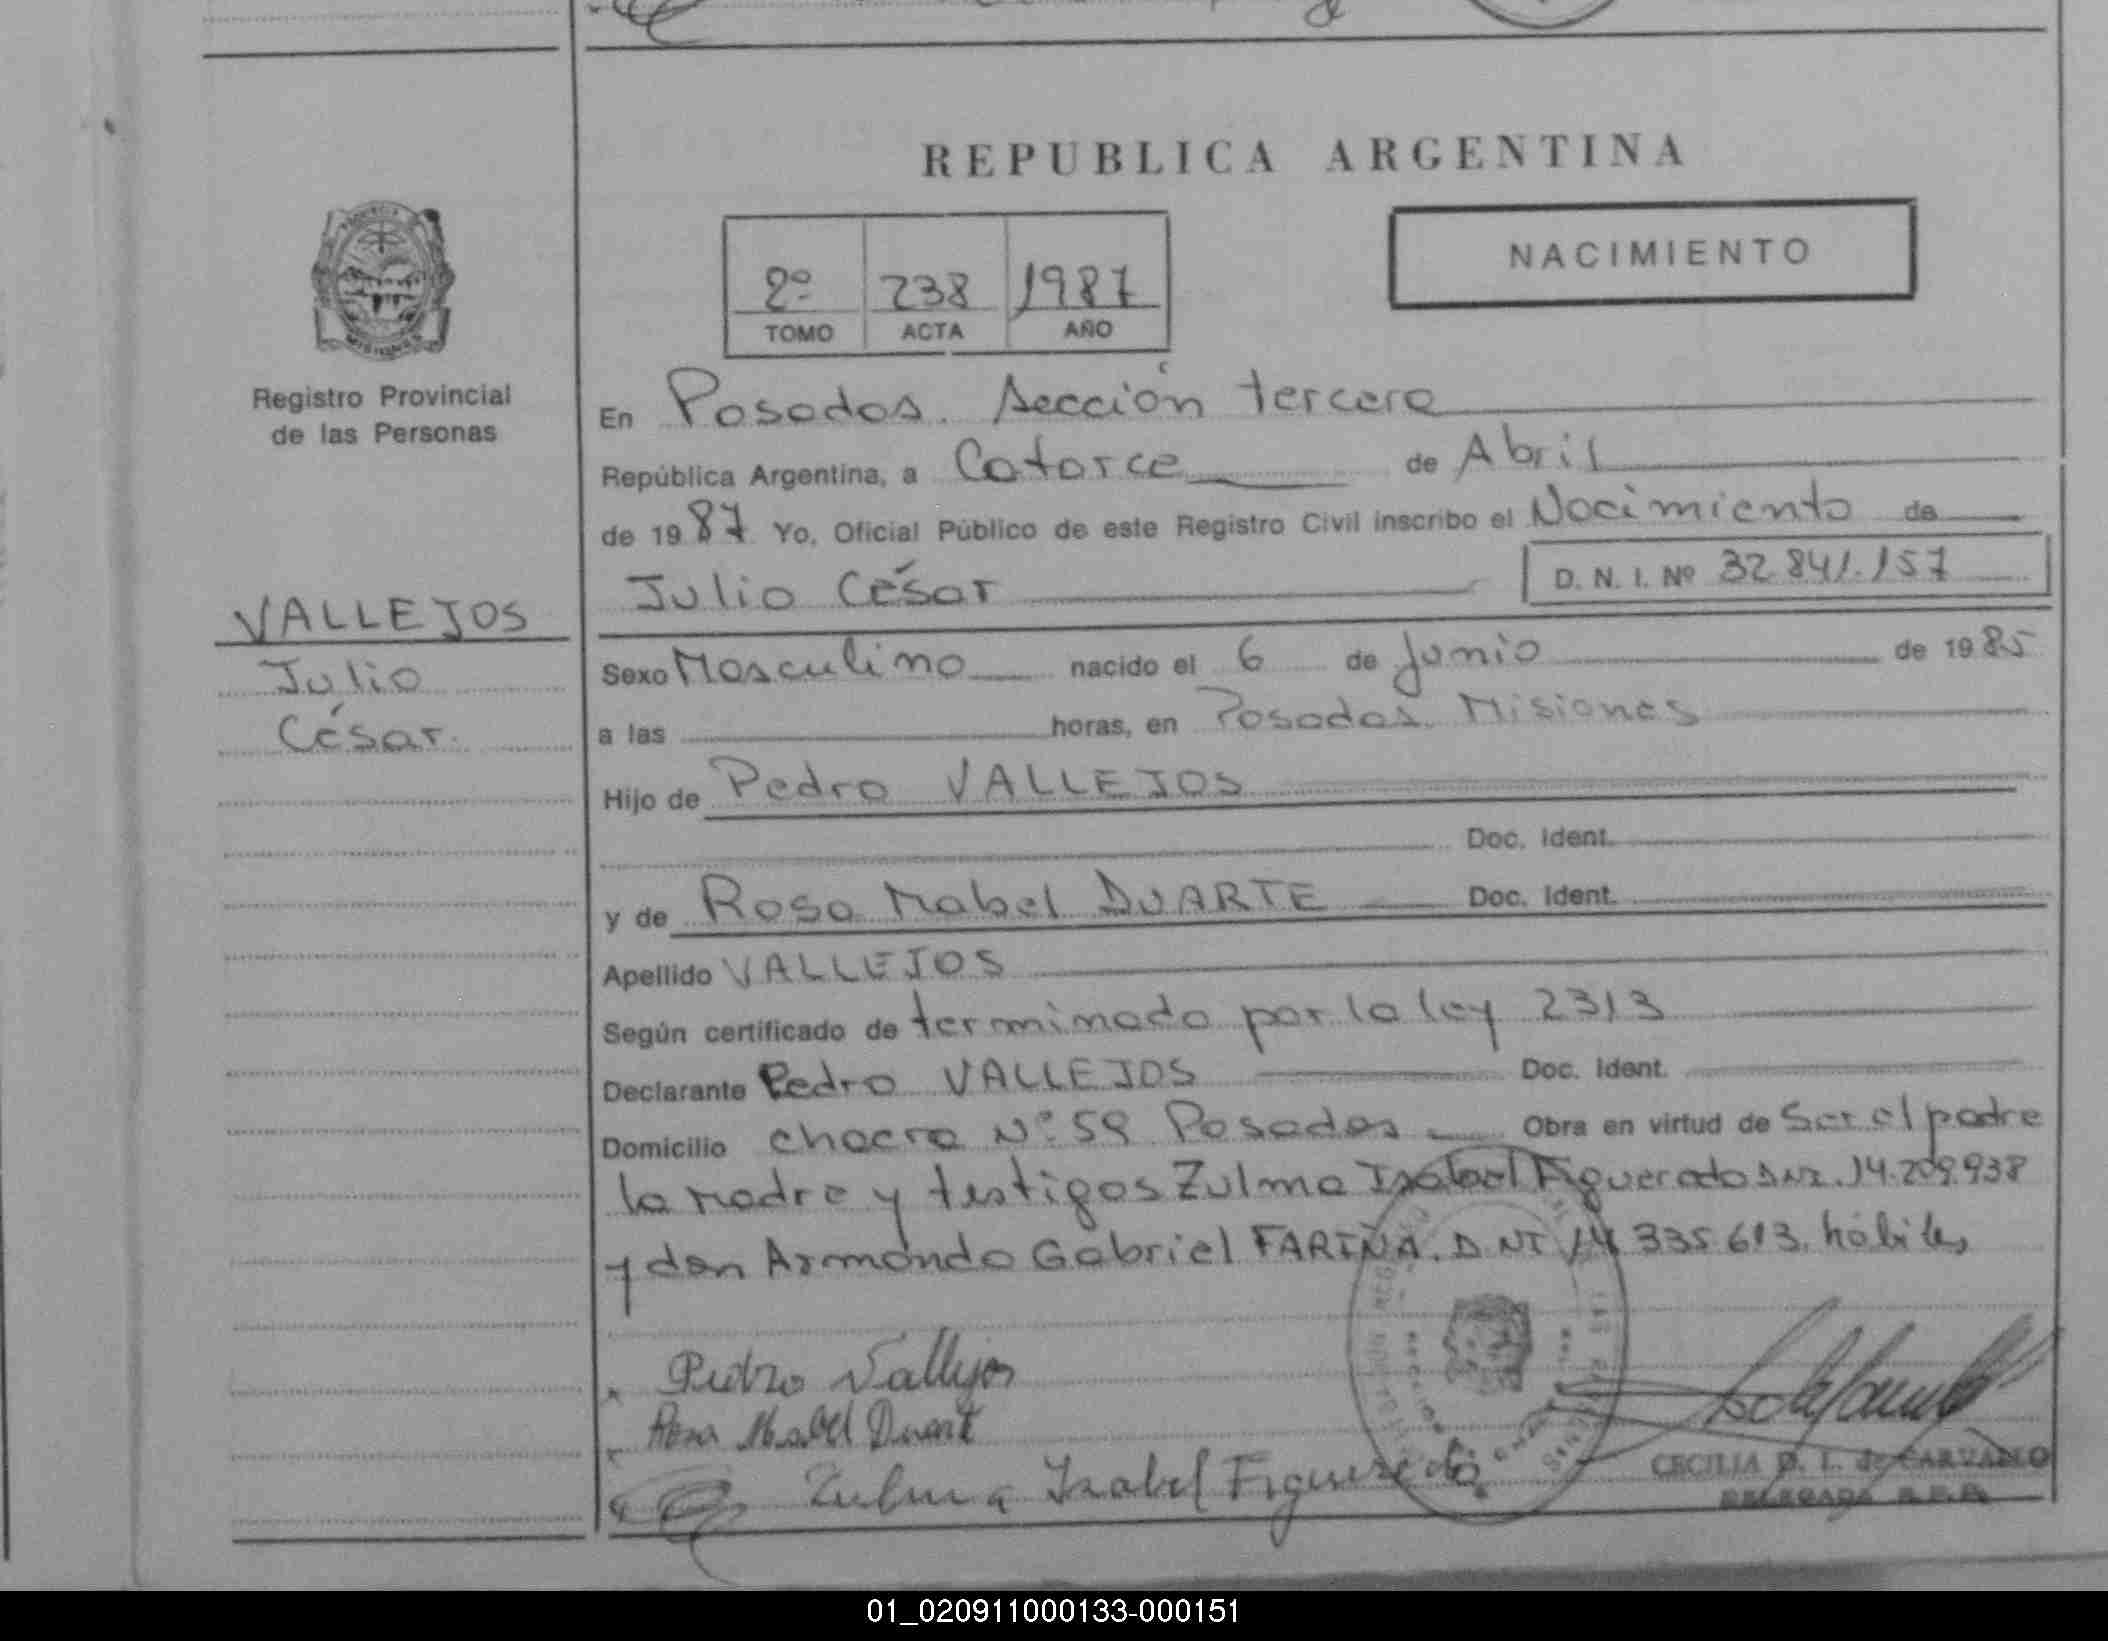 REPUBLICA ARGENTINA
NACIMIENTO
2º 238 1987
TOMO ACTA AÑO
Registro Provincial
de las Personas
VALLEJOS
Julio
César.
En Posadas. Sección tercera
República Argentina, a Catorce de Abril
de 1987 Yo, Oficial Público de este Registro Civil inscribo el Nacimiento de
Julio César D. N. I. Nº 32.841.157
Sexo Masculino nacido el 6 de Junio de 1985
a las horas, en Posadas. Misiones
Hijo de Pedro VALLEJOS
Doc. Ident.
y de Rosa Mabel DUARTE Doc. Ident.
Apellido VALLEJOS
Según certificado de terminado por la ley 2313
Declarante Pedro VALLEJOS Doc. Ident.
Domicilio chacra Nº 59 Posadas Obra en virtud de Ser el padre
la madre y testigos Zulma Isabel Figueredo DNI. 14.209.938
y don Armando Gabriel FARIÑA. D.NI 14 335 613. hábiles
Pedro Vallejos
Rosa Mabel Duarte
Zulma Isabel Figueredo
CECILIA D. L. de CARVALLO
DELEGADA R.P.P.
01_020911000133-000151